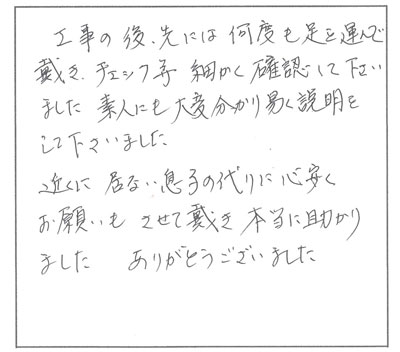 工事の後、先には何度も足を運んで
戴き、チェック等 細かく確認して下さい
ました 素人にも大変分かり易く説明を
して下さいました
近くに居ない息子の代りに心安く
お願いも させて戴き 本当に助かり
ました ありがとうございました